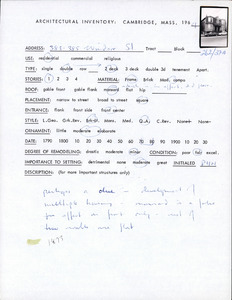 ARCHITECTURAL INVENTORY: CAMBRIDGE, MASS, 196
ADDRESS: St Tract Block
USE: residential commercial religious
TYPE: single double row 2 deck 3 deck double 3d tenement Apart.
STORIES: 1 2 3 4 MATERIAL: Frame Brick Mod. compo
ROOF: gable front gable flank mansard flat hip
PLACEMENT: narrow to street broad to street square
ENTRANCE: flank front side front center
STYLE: L.Geo. Gk.Rev. Ital. Mans. Q.A. C.Rev. None
ORNAMENT: little moderate elaborate
DATE: 1790 1800 10 20 30 40 50 60 70 80 90 1900 10 20 30
DEGREE OF REMODELING: drastic moderate minor CONDITION: poor fair excel.
IMPORTANCE TO SETTING: detrimental none moderate great INITIALED
DESCRIPTION: (for more important structures only)
perhaps a development of
multiple housing - mansard is a false
for effect on front only - rest of
are flat
1875